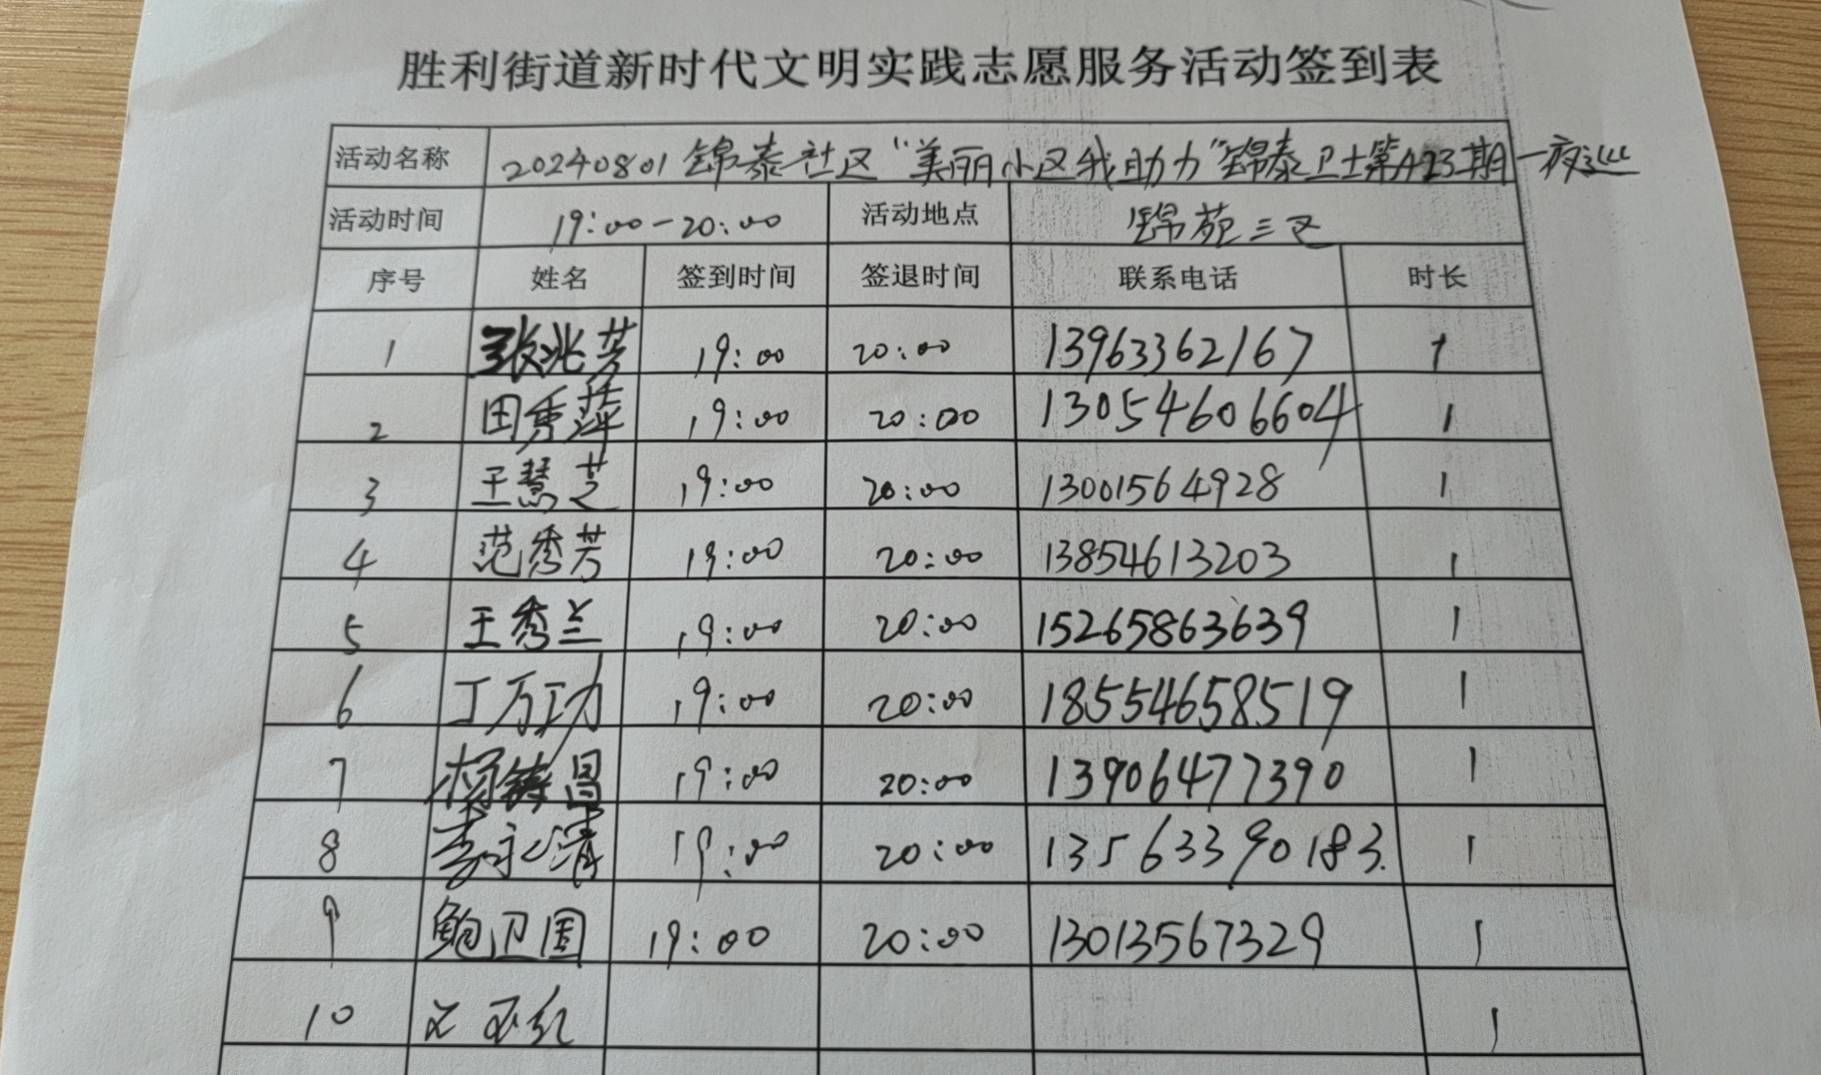 胜利街道新时代文明实践志愿服务活动签到表
活动名称 20240801锦泰社区“美丽小区我助力”锦泰卫士第423期—夜巡
活动时间 19:00-20:00 活动地点 锦苑三区
序号 姓名 签到时间 签退时间 联系电话 时长
1 张兆芳 19:00 20:00 13963362167 1
2 田秀萍 19:00 20:00 13054606604 1
3 王慧芝 19:00 20:00 13001564928 1
4 范秀芳 19:00 20:00 13854613203 1
5 王秀兰 19:00 20:00 15265863639 1
6 丁万功 19:00 20:00 18554658519 1
7 杨铸昌 19:00 20:00 13906477390 1
8 李永清 19:00 20:00 13563390183. 1
9 鲍卫国 19:00 20:00 13013567329 1
10 红 1